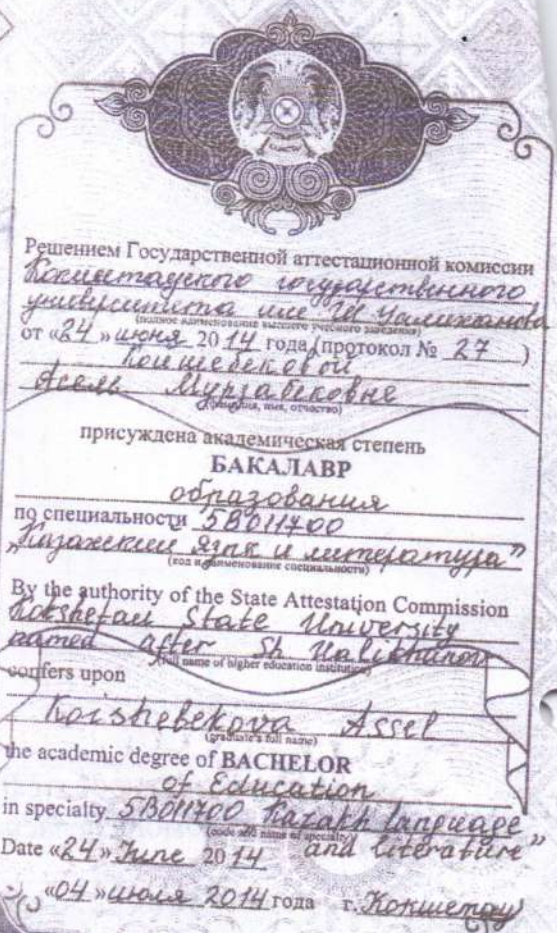 Решением Государственной аттестационной комиссии
Кокшетауского государственного
университета им Ш Уалиханова
(полное наименование высшего учебного заведения)
от «24» июня 2014 года (протокол № 27)
Коишебековой
Асель Мурзабековне
(фамилия, имя, отчество)
присуждена академическая степень
БАКАЛАВР
образования
по специальности 5В011700
„Казахский язык и литература”
(код и наименование специальности)
By the authority of the State Attestation Commission
Kokshetau State University
named after Sh Ualikhanov
(full name of higher education institution)
confers upon
Koishebekova Assel
(graduate's full name)
the academic degree of BACHELOR
of Education
in specialty 5B011700 Kazakh language
(code and name of specialty)
Date «24» June 2014 and literature”
«04» июля 2014 года г. Кокшетау